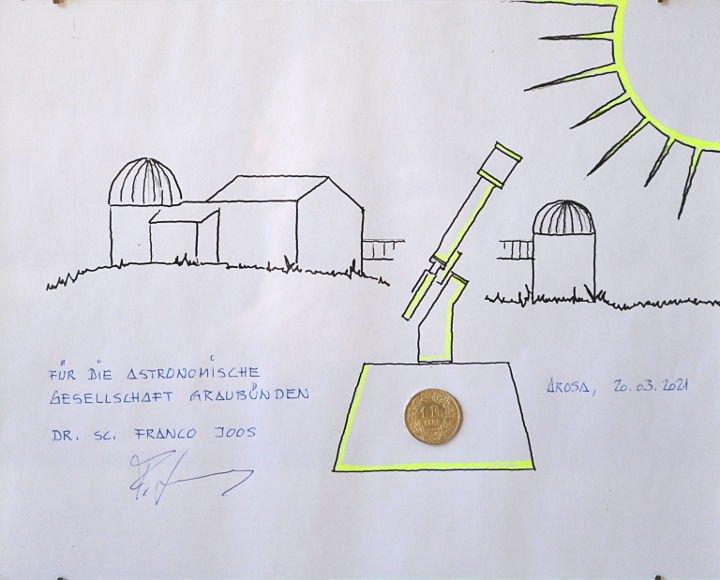 FÜR DIE ASTRONOMISCHE
GESELLSCHAFT GRAUBÜNDEN
DR. SC. FRANCO JOOS
AROSA, 20.03.2021
1 Fr.